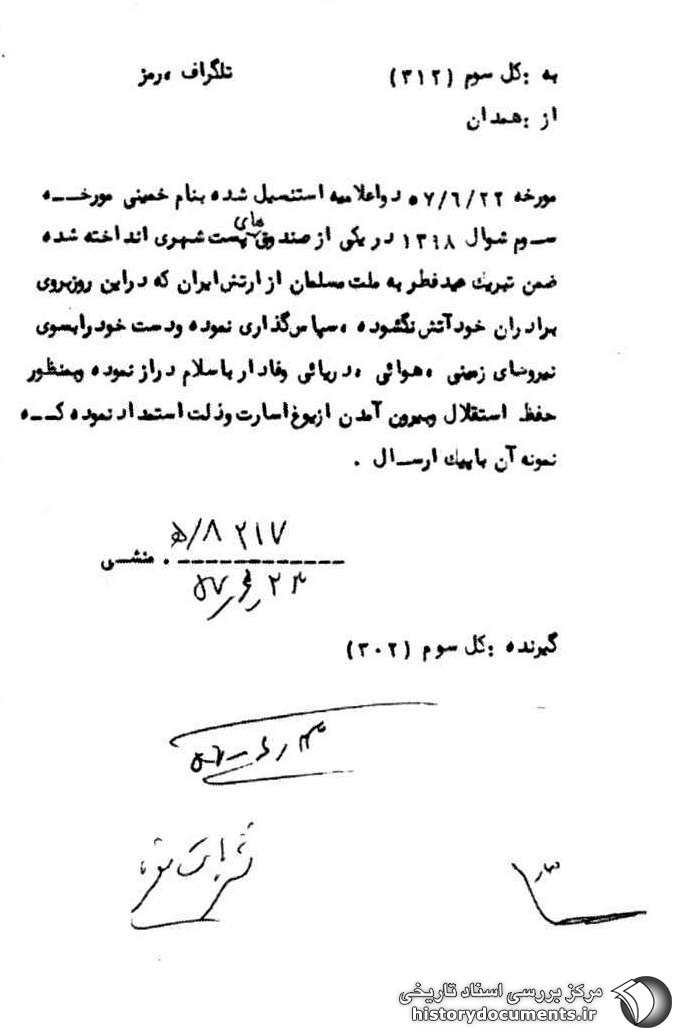 به :کل سوم (۳۱۲) تلگراف ،رمز
از :همدان
مورخه ۵۷/۶/۲۲ دواعلامیه استنسیل شده بنام خمینی مورخـــه
سـوم شوال ۱۳۹۸ در یکی از صندوق های پست شهری انداخته شده
ضمن تبریک عید فطر به ملت مسلمان از ارتش ایران که در این روز بروی
برادران خود آتش نگشوده ،سپاس گذاری نموده ودست خود را بسوی
نیروهای زمینی ،هوائی ،دریائی وفادار باسلام دراز نموده وبمنظور
حفظ استقلال وبیرون آمدن ازیوغ اسارت وذلت استمداد نموده کـــه
نمونه آن باپیک ارســال .
۲۱۷ ۸/ھ
. منشـی
۵۷٫۶٫۲۳
گیرنده :کل سوم (۳۰۲)
مرکز بررسی اسناد تاریخی
historydocuments.ir